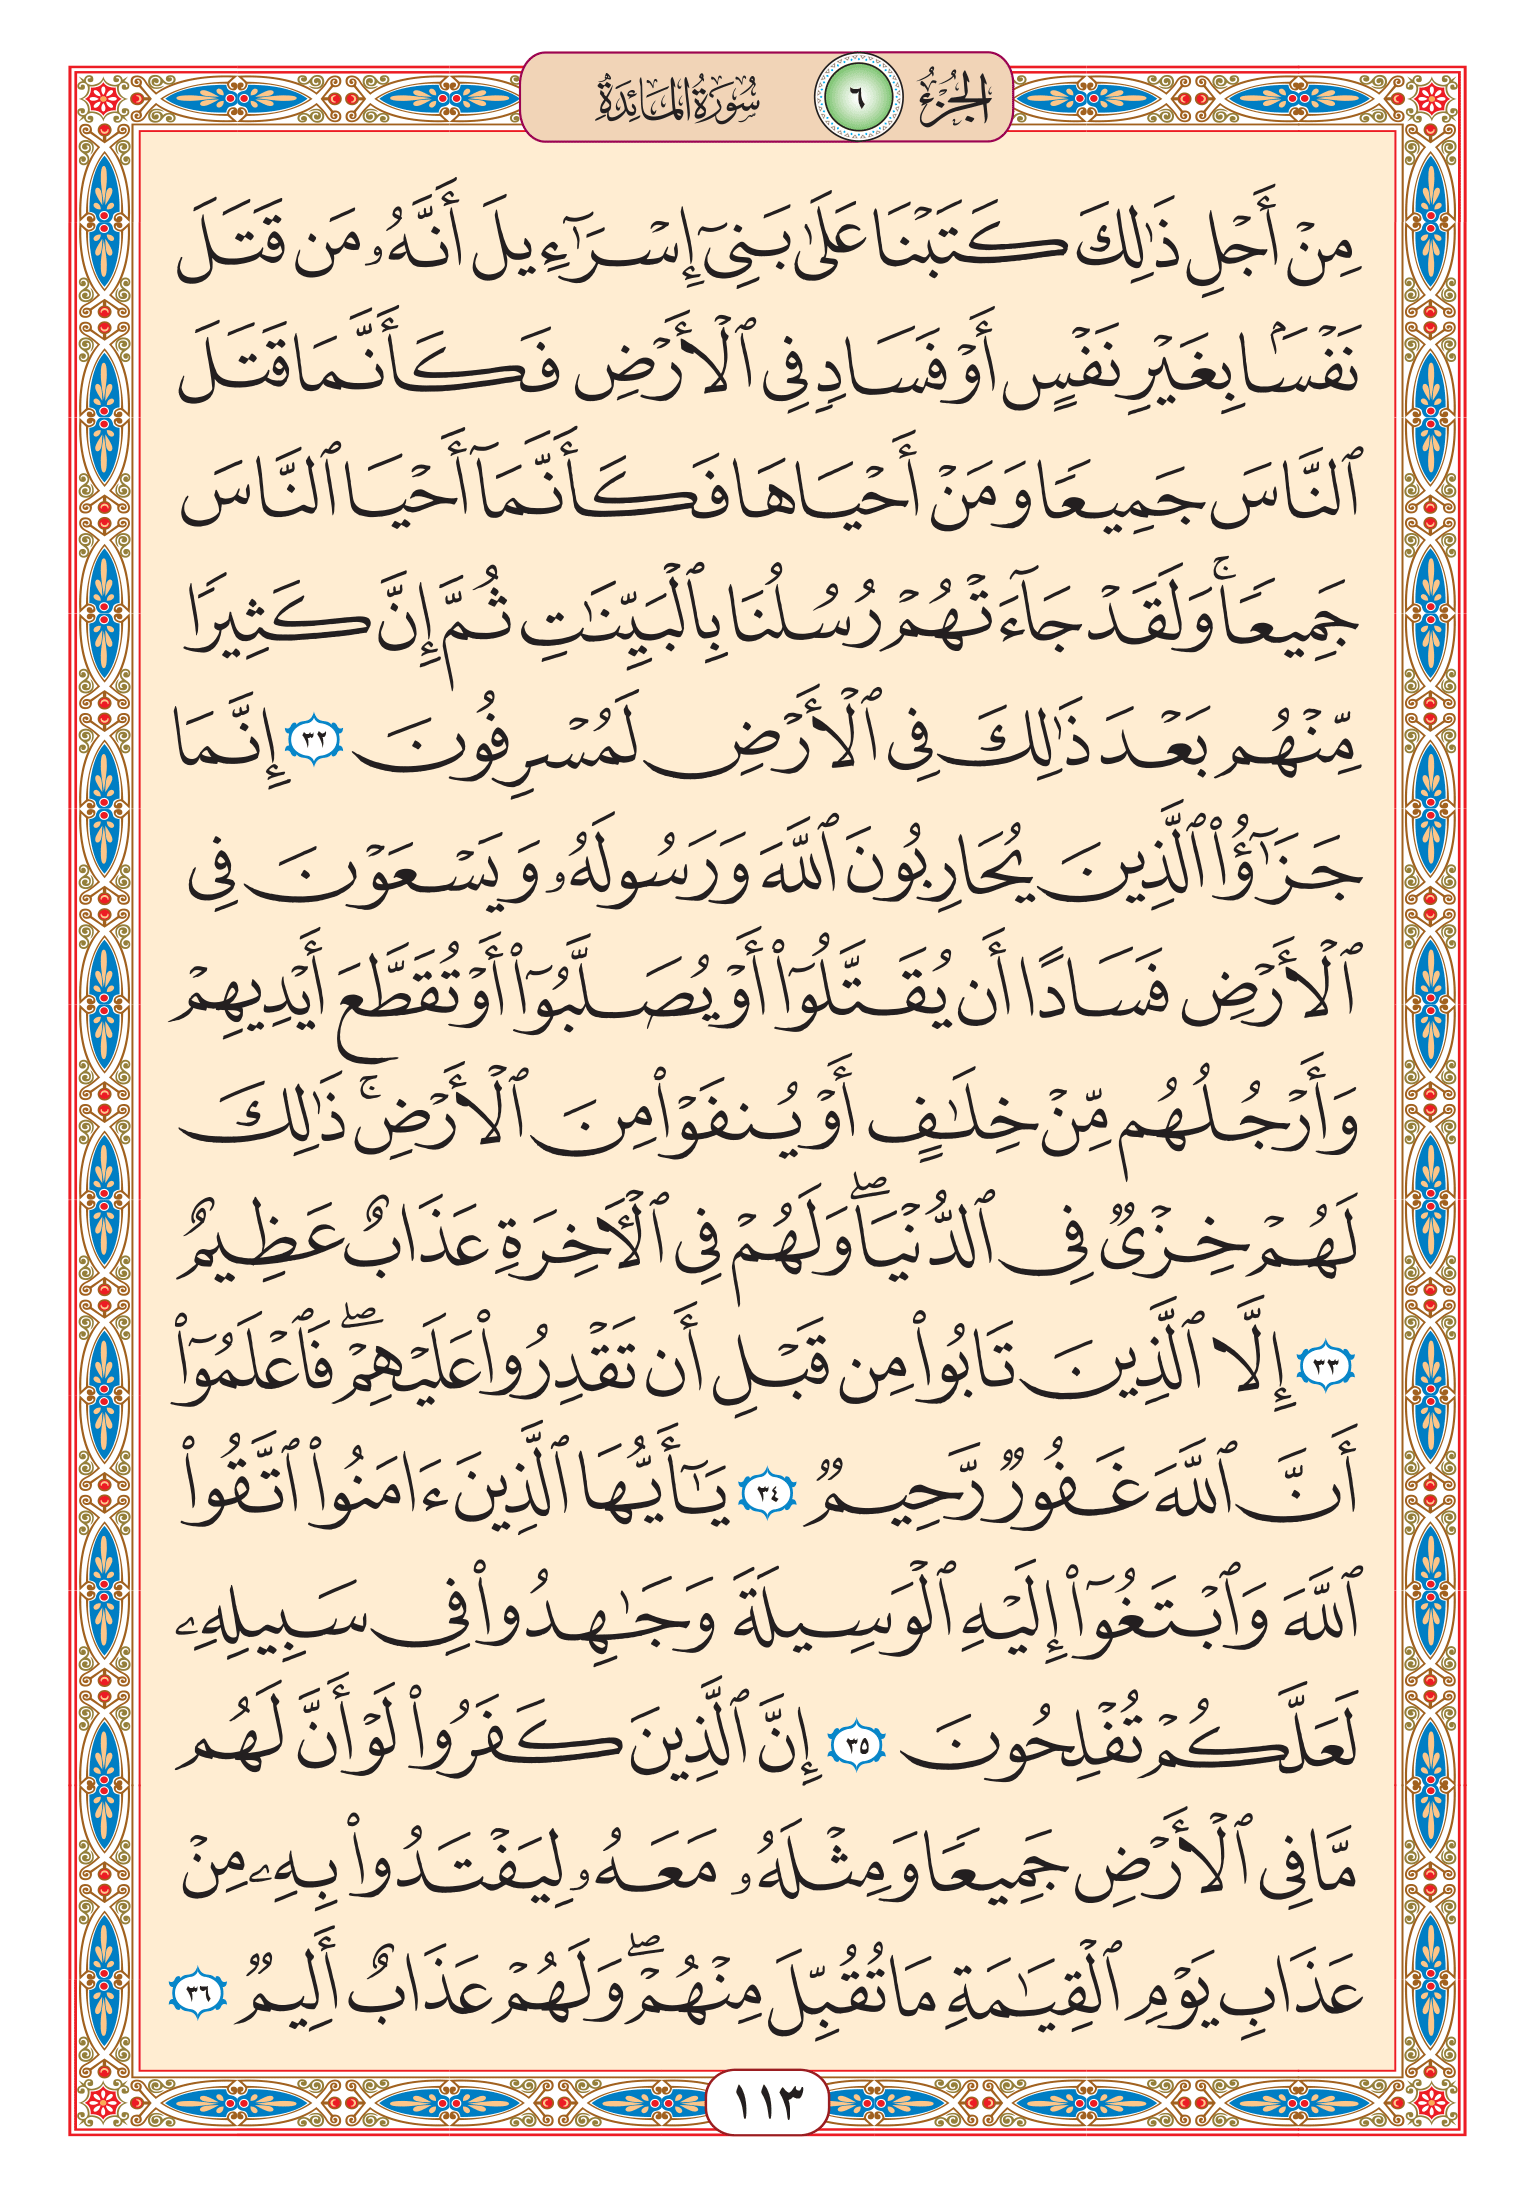 الجزء ٦ سورة المائدة
مِنْ أَجْلِ ذَٰلِكَ كَتَبْنَا عَلَىٰ بَنِىٓ إِسْرَٰٓءِيلَ أَنَّهُۥ مَن قَتَلَ
نَفْسَۢا بِغَيْرِ نَفْسٍ أَوْ فَسَادٍ فِى ٱلْأَرْضِ فَكَأَنَّمَا قَتَلَ
ٱلنَّاسَ جَمِيعًا وَمَنْ أَحْيَاهَا فَكَأَنَّمَآ أَحْيَا ٱلنَّاسَ
جَمِيعًا ۚ وَلَقَدْ جَآءَتْهُمْ رُسُلُنَا بِٱلْبَيِّنَٰتِ ثُمَّ إِنَّ كَثِيرًا
مِّنْهُم بَعْدَ ذَٰلِكَ فِى ٱلْأَرْضِ لَمُسْرِفُونَ ٣٢ إِنَّمَا
جَزَٰٓؤُا۟ ٱلَّذِينَ يُحَارِبُونَ ٱللَّهَ وَرَسُولَهُۥ وَيَسْعَوْنَ فِى
ٱلْأَرْضِ فَسَادًا أَن يُقَتَّلُوٓا۟ أَوْ يُصَلَّبُوٓا۟ أَوْ تُقَطَّعَ أَيْدِيهِمْ
وَأَرْجُلُهُم مِّنْ خِلَٰفٍ أَوْ يُنفَوْا۟ مِنَ ٱلْأَرْضِ ۚ ذَٰلِكَ
لَهُمْ خِزْىٌ فِى ٱلدُّنْيَا ۖ وَلَهُمْ فِى ٱلْـَٔاخِرَةِ عَذَابٌ عَظِيمٌ
٣٣ إِلَّا ٱلَّذِينَ تَابُوا۟ مِن قَبْلِ أَن تَقْدِرُوا۟ عَلَيْهِمْ ۖ فَٱعْلَمُوٓا۟
أَنَّ ٱللَّهَ غَفُورٌ رَّحِيمٌ ٣٤ يَٰٓأَيُّهَا ٱلَّذِينَ ءَامَنُوا۟ ٱتَّقُوا۟
ٱللَّهَ وَٱبْتَغُوٓا۟ إِلَيْهِ ٱلْوَسِيلَةَ وَجَٰهِدُوا۟ فِى سَبِيلِهِۦ
لَعَلَّكُمْ تُفْلِحُونَ ٣٥ إِنَّ ٱلَّذِينَ كَفَرُوا۟ لَوْ أَنَّ لَهُم
مَّا فِى ٱلْأَرْضِ جَمِيعًا وَمِثْلَهُۥ مَعَهُۥ لِيَفْتَدُوا۟ بِهِۦ مِنْ
عَذَابِ يَوْمِ ٱلْقِيَٰمَةِ مَا تُقُبِّلَ مِنْهُمْ ۖ وَلَهُمْ عَذَابٌ أَلِيمٌ ٣٦
١١٣